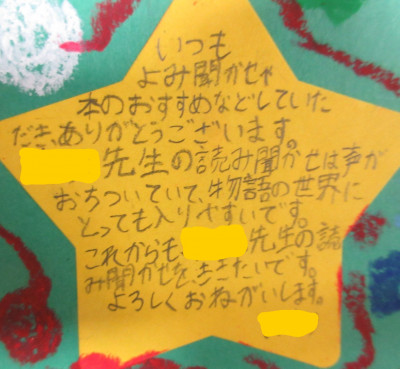 いつも
よみ聞かせや
本のおすすめなどしていた
だき、ありがとうございます。
先生の読み聞かせは声が
おちついていて、物語の世界に
とっても入りやすいです。
これからも、先生の読
み聞かせを、ききたいです。
よろしくおねがいします。